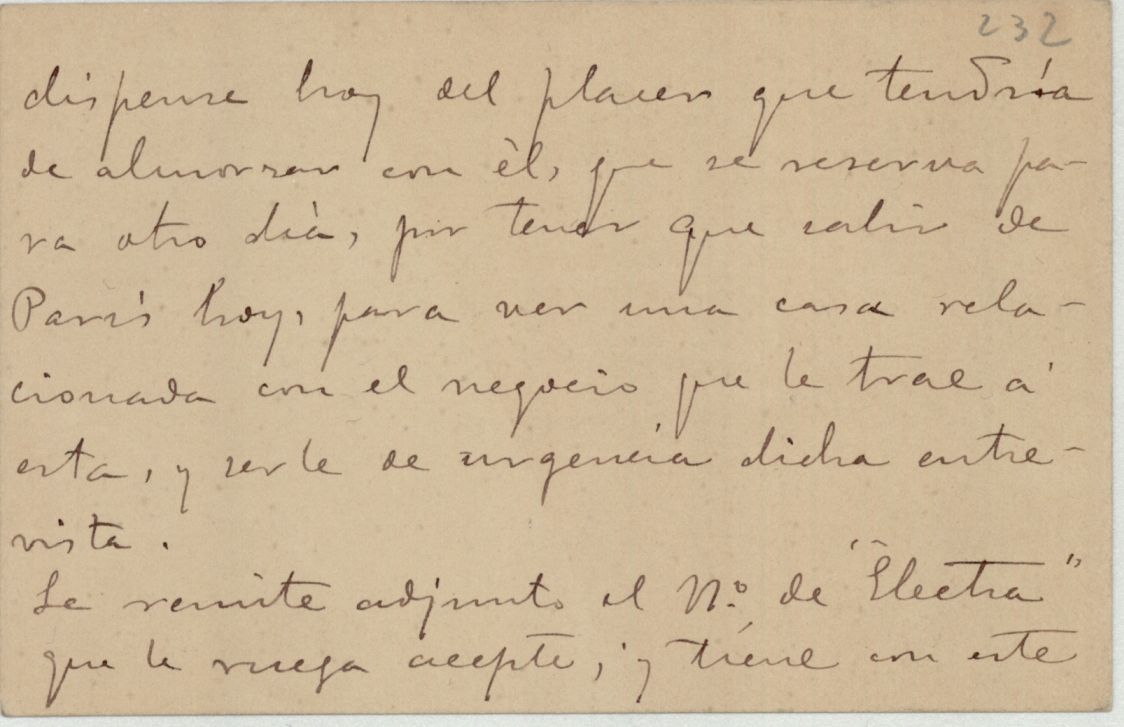 232
dispense hoy del placer que tendría
de almorzar con èl, que se reserva pa-
ra otro dià, por tener que salir de
París hoy, para ver una casa rela-
cionada con el negocio que le trae á
esta, y serle de urgencia dicha entre-
vista.
Le remite adjunto el Nº. de "Electra"
que le ruega acepte; y tiene con este